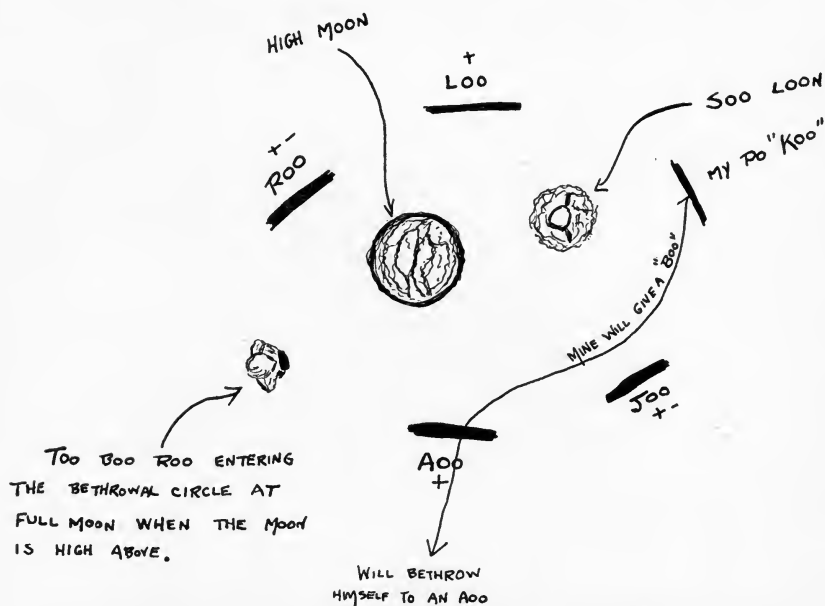 HIGH MOON
+
LOO
SOO LOON
+ -
ROO
MY PO "KOO"
MINE WILL GIVE A "BOO"
JOO
+ -
AOO
+
TOO BOO ROO ENTERING
THE BETHROWAL CIRCLE AT
FULL MOON WHEN THE MOON
IS HIGH ABOVE.
WILL BETHROW
HIMSELF TO AN AOO